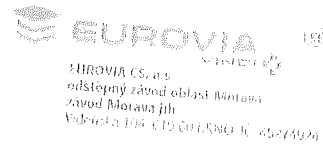 EUROVIA
VINCI
EUROVIA CS, a.s.
odštěpný závod oblast Morava
závod Morava jih
Vídeňská 104, 619 00 BRNO IČ: 45274924